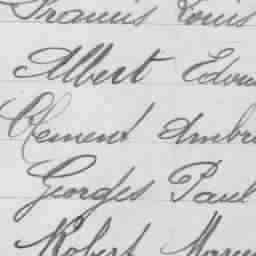 Francis Louis
Albert Edou
Clement Ambro
Georges Paul
Robert